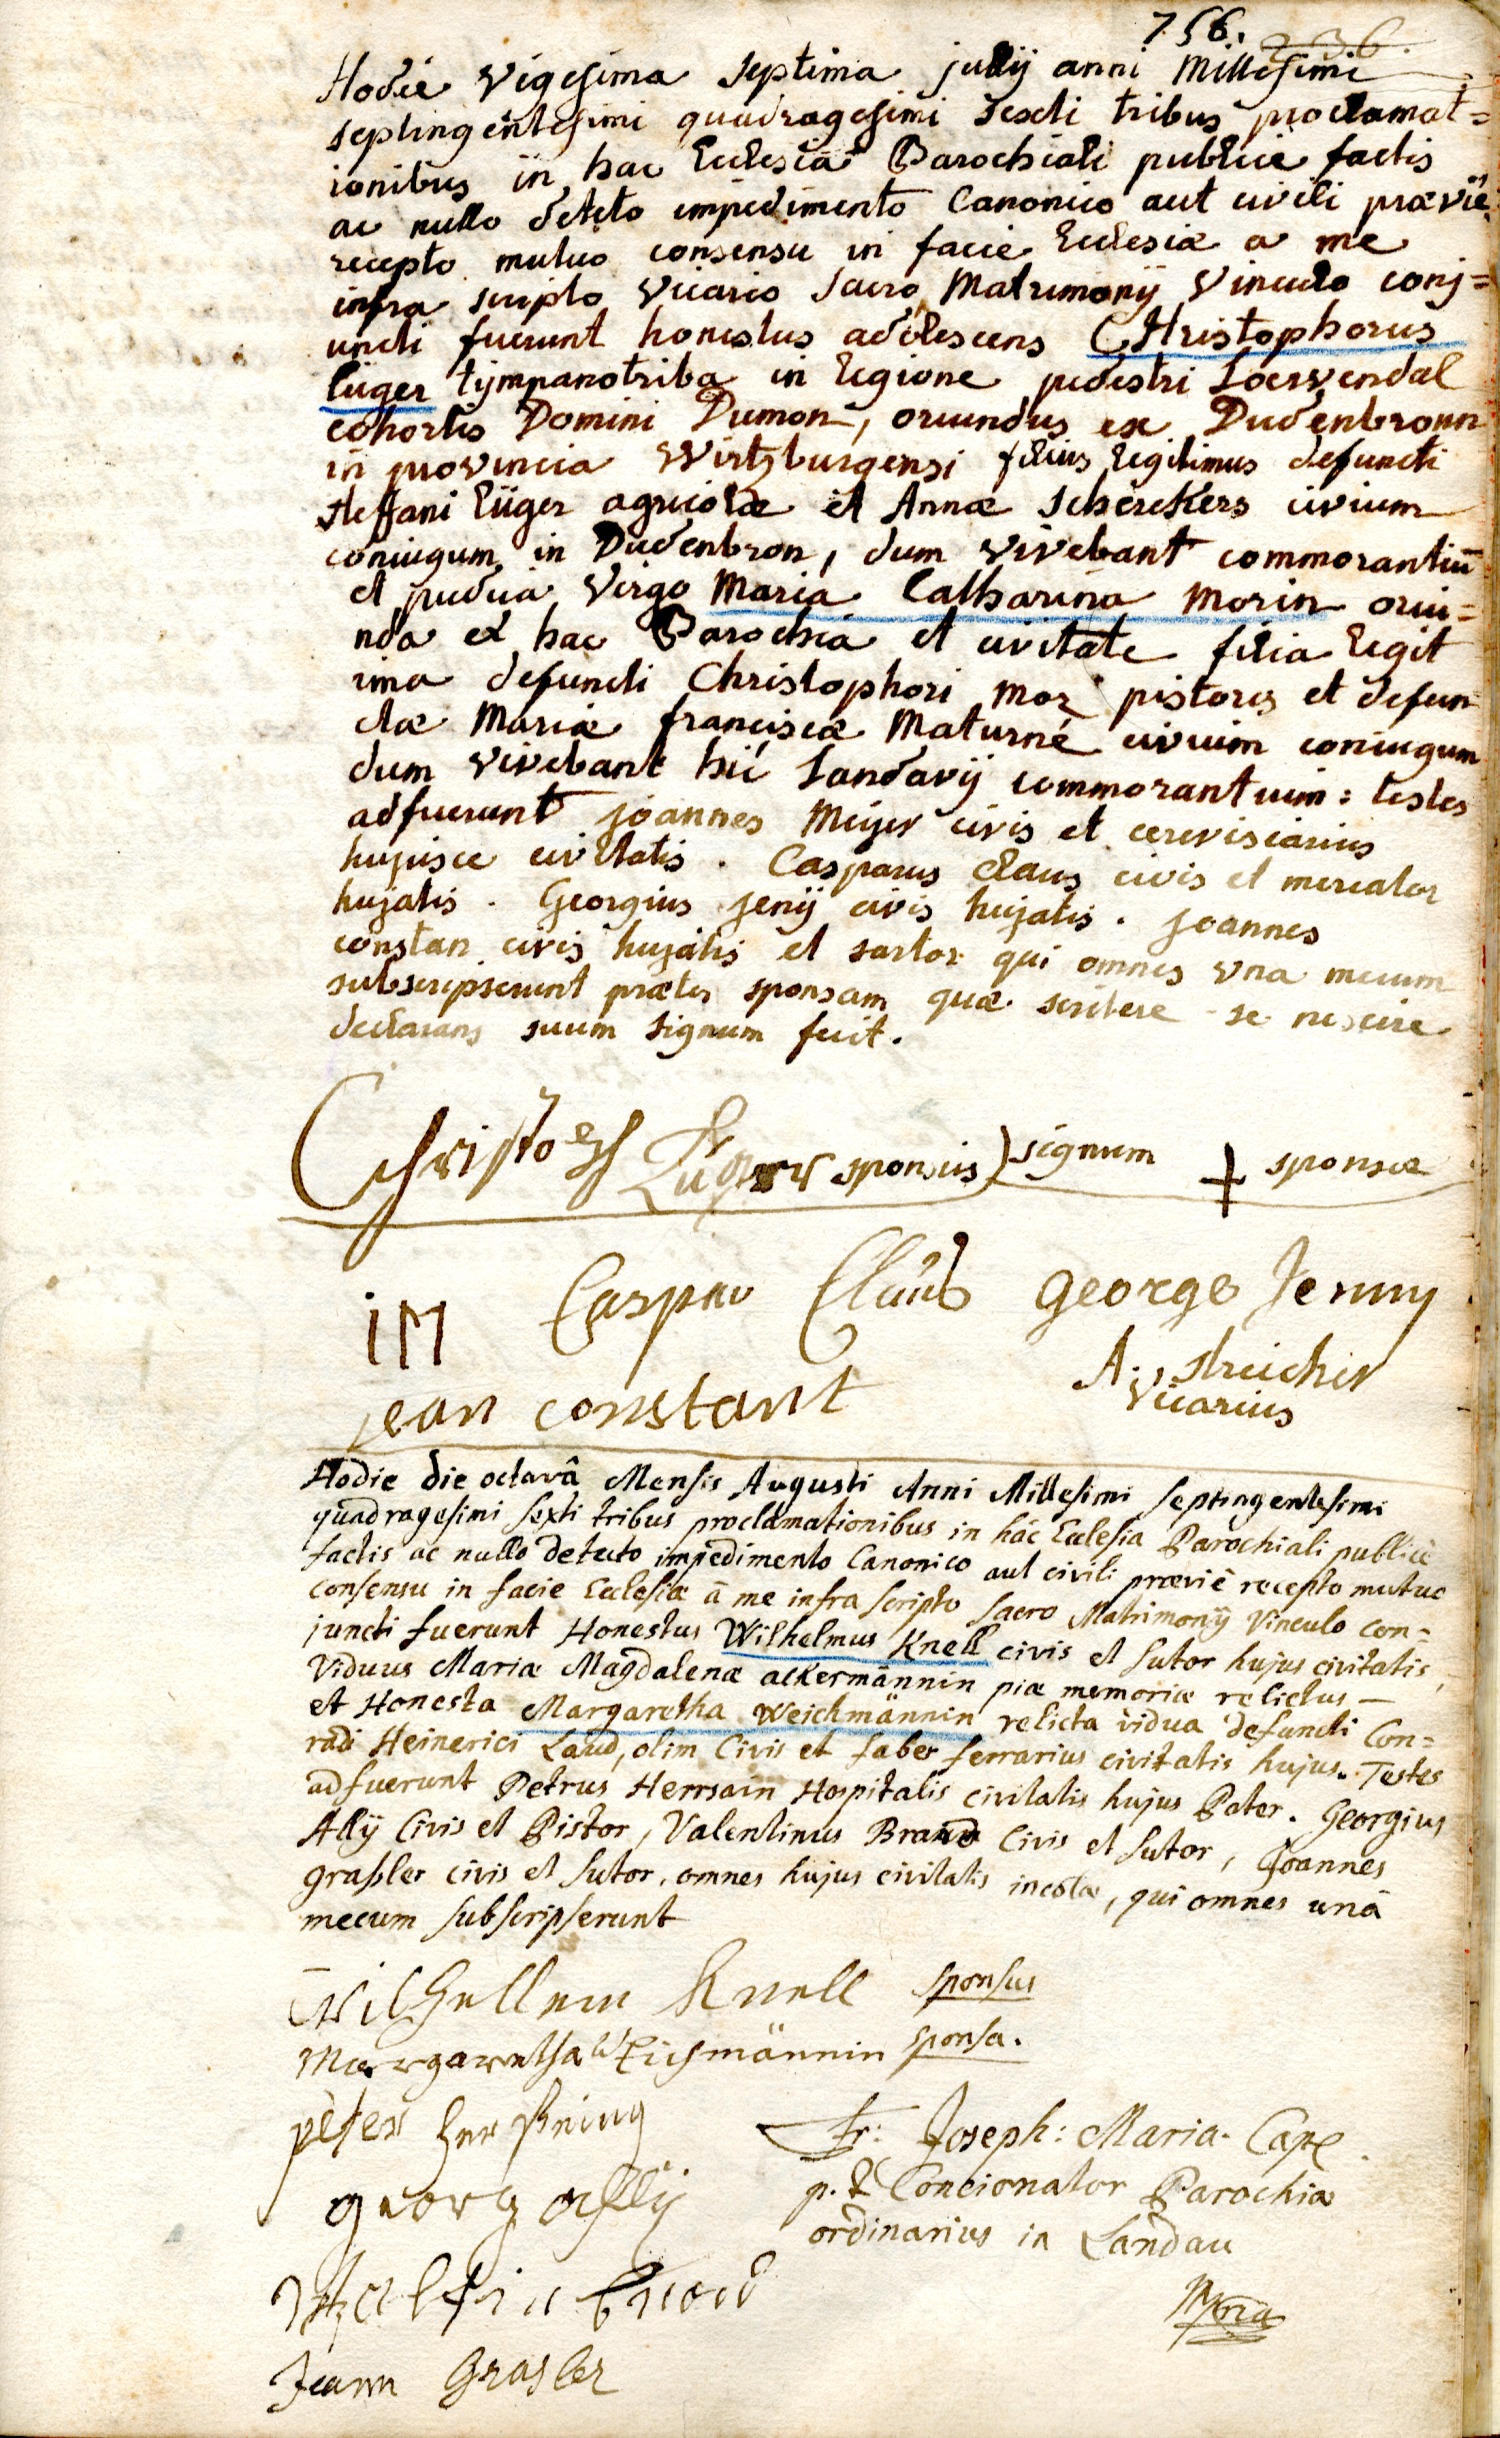 756. 236.
Hodie vigesima septima julÿ anni Millesimi
septingentesimi quadragesimi sexti tribus proclamat=
ionibus in hac Ecclesia Parochiali publice factis
ac nullo detecto impedimento Canonico aut civili prævie
recepto mutuo consensu in facie Ecclesiæ a me
infra scripto vicario sacro Matrimonÿ vinculo conj=
uncti fuerunt honestus adolescens CHristophorus
lüger tÿmpanotriba in legione pedestri Loewendal
cohortis Domini Dumon, oriundus ex Dudenbronn
in provincia Wirtzburgensi filius legitimus defuncti
steffani lüger agricolæ et Annæ scherckers civium
coniugum in Dudenbron, dum vivebant commorantiū
et pudica virgo Maria Catharina Morin oriu=
nda ex hac Parochia et civitate filia legit
ima defuncti Christophori Mor pistoris et defun
ctæ Mariæ franciscæ Maturné civium coniugum
dum vivebant hic Landavÿ commorantium: testes
adfuerunt joannes Meÿer civis et cerevisiarius
hujusce civitatis. Casparus claus civis et mercator
hujatis. Georgius jenÿ civis hujatis. joannes
constan civis hujatis et sartor qui omnes una mecum
subscripserunt præter sponsam quæ scribere se nescire
declarans suum signum fecit.
Christoph Lüger sponsus) signum + sponsæ
iM Caspar Claus George Jenny
A. streicher
jean constant vicarius
Hodie die octavâ Mensis Augusti Anni Millesimi septingentesimi
quadragesimi sexti tribus proclamationibus in hâc Ecclesia Parochiali publicè
factis ac nullo detecto impedimento Canonico aut civili præviè recepto mutuo
consensu in facie Ecclesiæ â me infra scripto sacro Matrimonÿ Vinculo con=
juncti fuerunt Honestus Wilhelmus Knell civis et sutor hujus civitatis,
Viduus Mariæ Magdalenæ ackermännin piæ memoriæ relictus —
et Honesta Margaretha Weichmännin relicta vidua defuncti Con=
radi Heinerici Laud, olim Civis et faber ferrarius civitatis hujus. Testes
adfuerunt Petrus Herrsain Hospitalis civitatis hujus Pater. Georgius
Allÿ Civis et Pistor, Valentinus Brand Civis et sutor, Joannes
graßler civis et sutor, omnes hujus civitatis incolæ, qui omnes unâ
mecum subscripserunt
Wilhellem Knell sponsus
Margaretha Weichmännin sponsa.
peter
Fr: Joseph: Maria. Cap.
georg allÿ
p. t. Concionator Parochiæ
ordinarius in Landau
Brand
Jeann Grasler